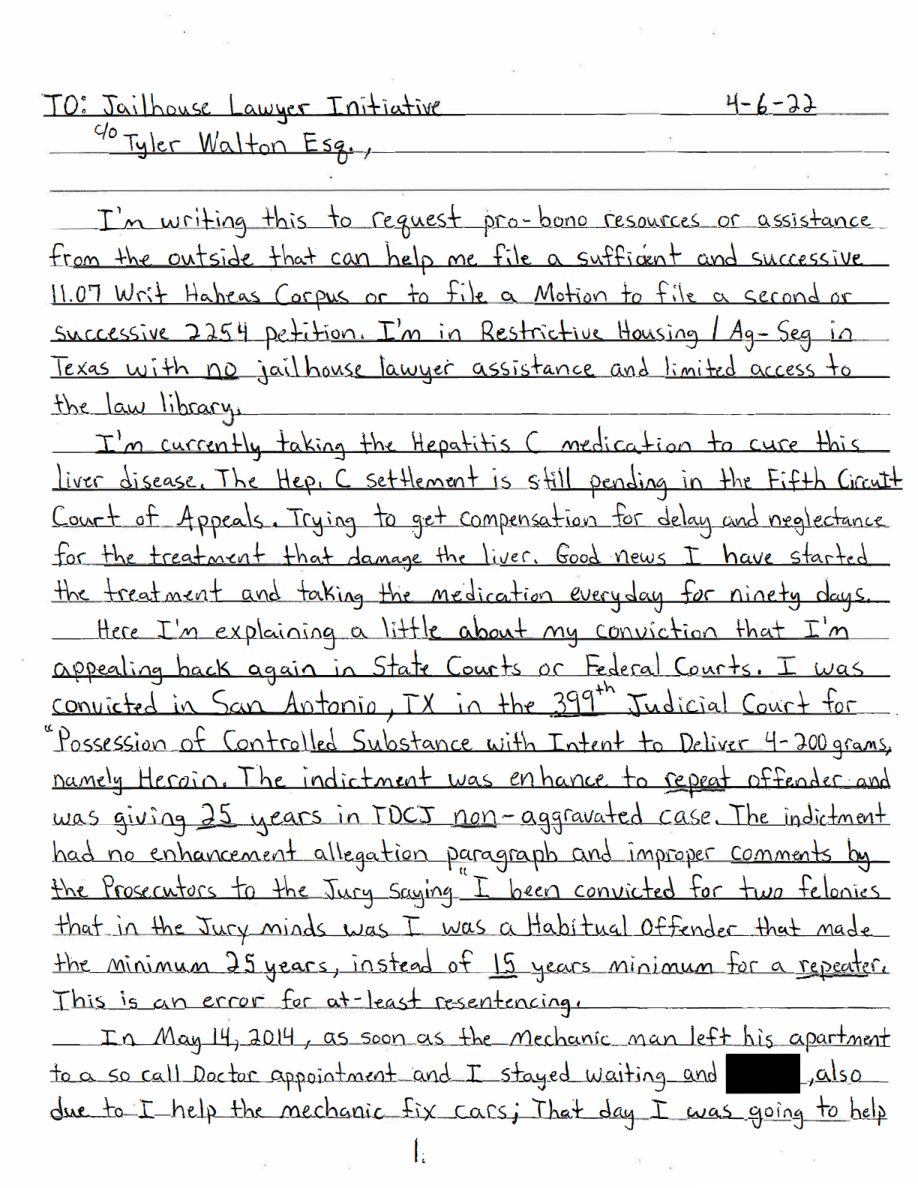 TO: Jailhouse Lawyer Initiative 4-6-22
c/o Tyler Walton Esq.,
I'm writing this to request pro-bono resources or assistance
from the outside that can help me file a sufficient and successive
11.07 Writ Habeas Corpus or to file a Motion to file a second or
successive 2254 petition. I'm in Restrictive Housing / Ag-Seg in
Texas with no jailhouse lawyer assistance and limited access to
the law library.
I'm currently taking the Hepatitis C medication to cure this
liver disease. The Hep. C settlement is still pending in the Fifth Circuit
Court of Appeals. Trying to get compensation for delay and neglectance
for the treatment that damage the liver. Good news I have started
the treatment and taking the medication everyday for ninety days.
Here I'm explaining a little about my conviction that I'm
appealing back again in State Courts or Federal Courts. I was
convicted in San Antonio, TX in the 399th Judicial Court for
"Possession of Controlled Substance with Intent to Deliver 4-200 grams,
namely Heroin. The indictment was enhance to repeat offender and
was giving 25 years in TDCJ non-aggravated case. The indictment
had no enhancement allegation paragraph and improper comments by
the Prosecutors to the Jury saying "I been convicted for two felonies
that in the Jury minds was I was a Habitual Offender that made
the minimum 25 years, instead of 15 years minimum for a repeater.
This is an error for at-least resentencing.
In May 14, 2014, as soon as the Mechanic man left his apartment
to a so call Doctor appointment and I stayed waiting and , also
due to I help the mechanic fix cars; That day I was going to help
1.